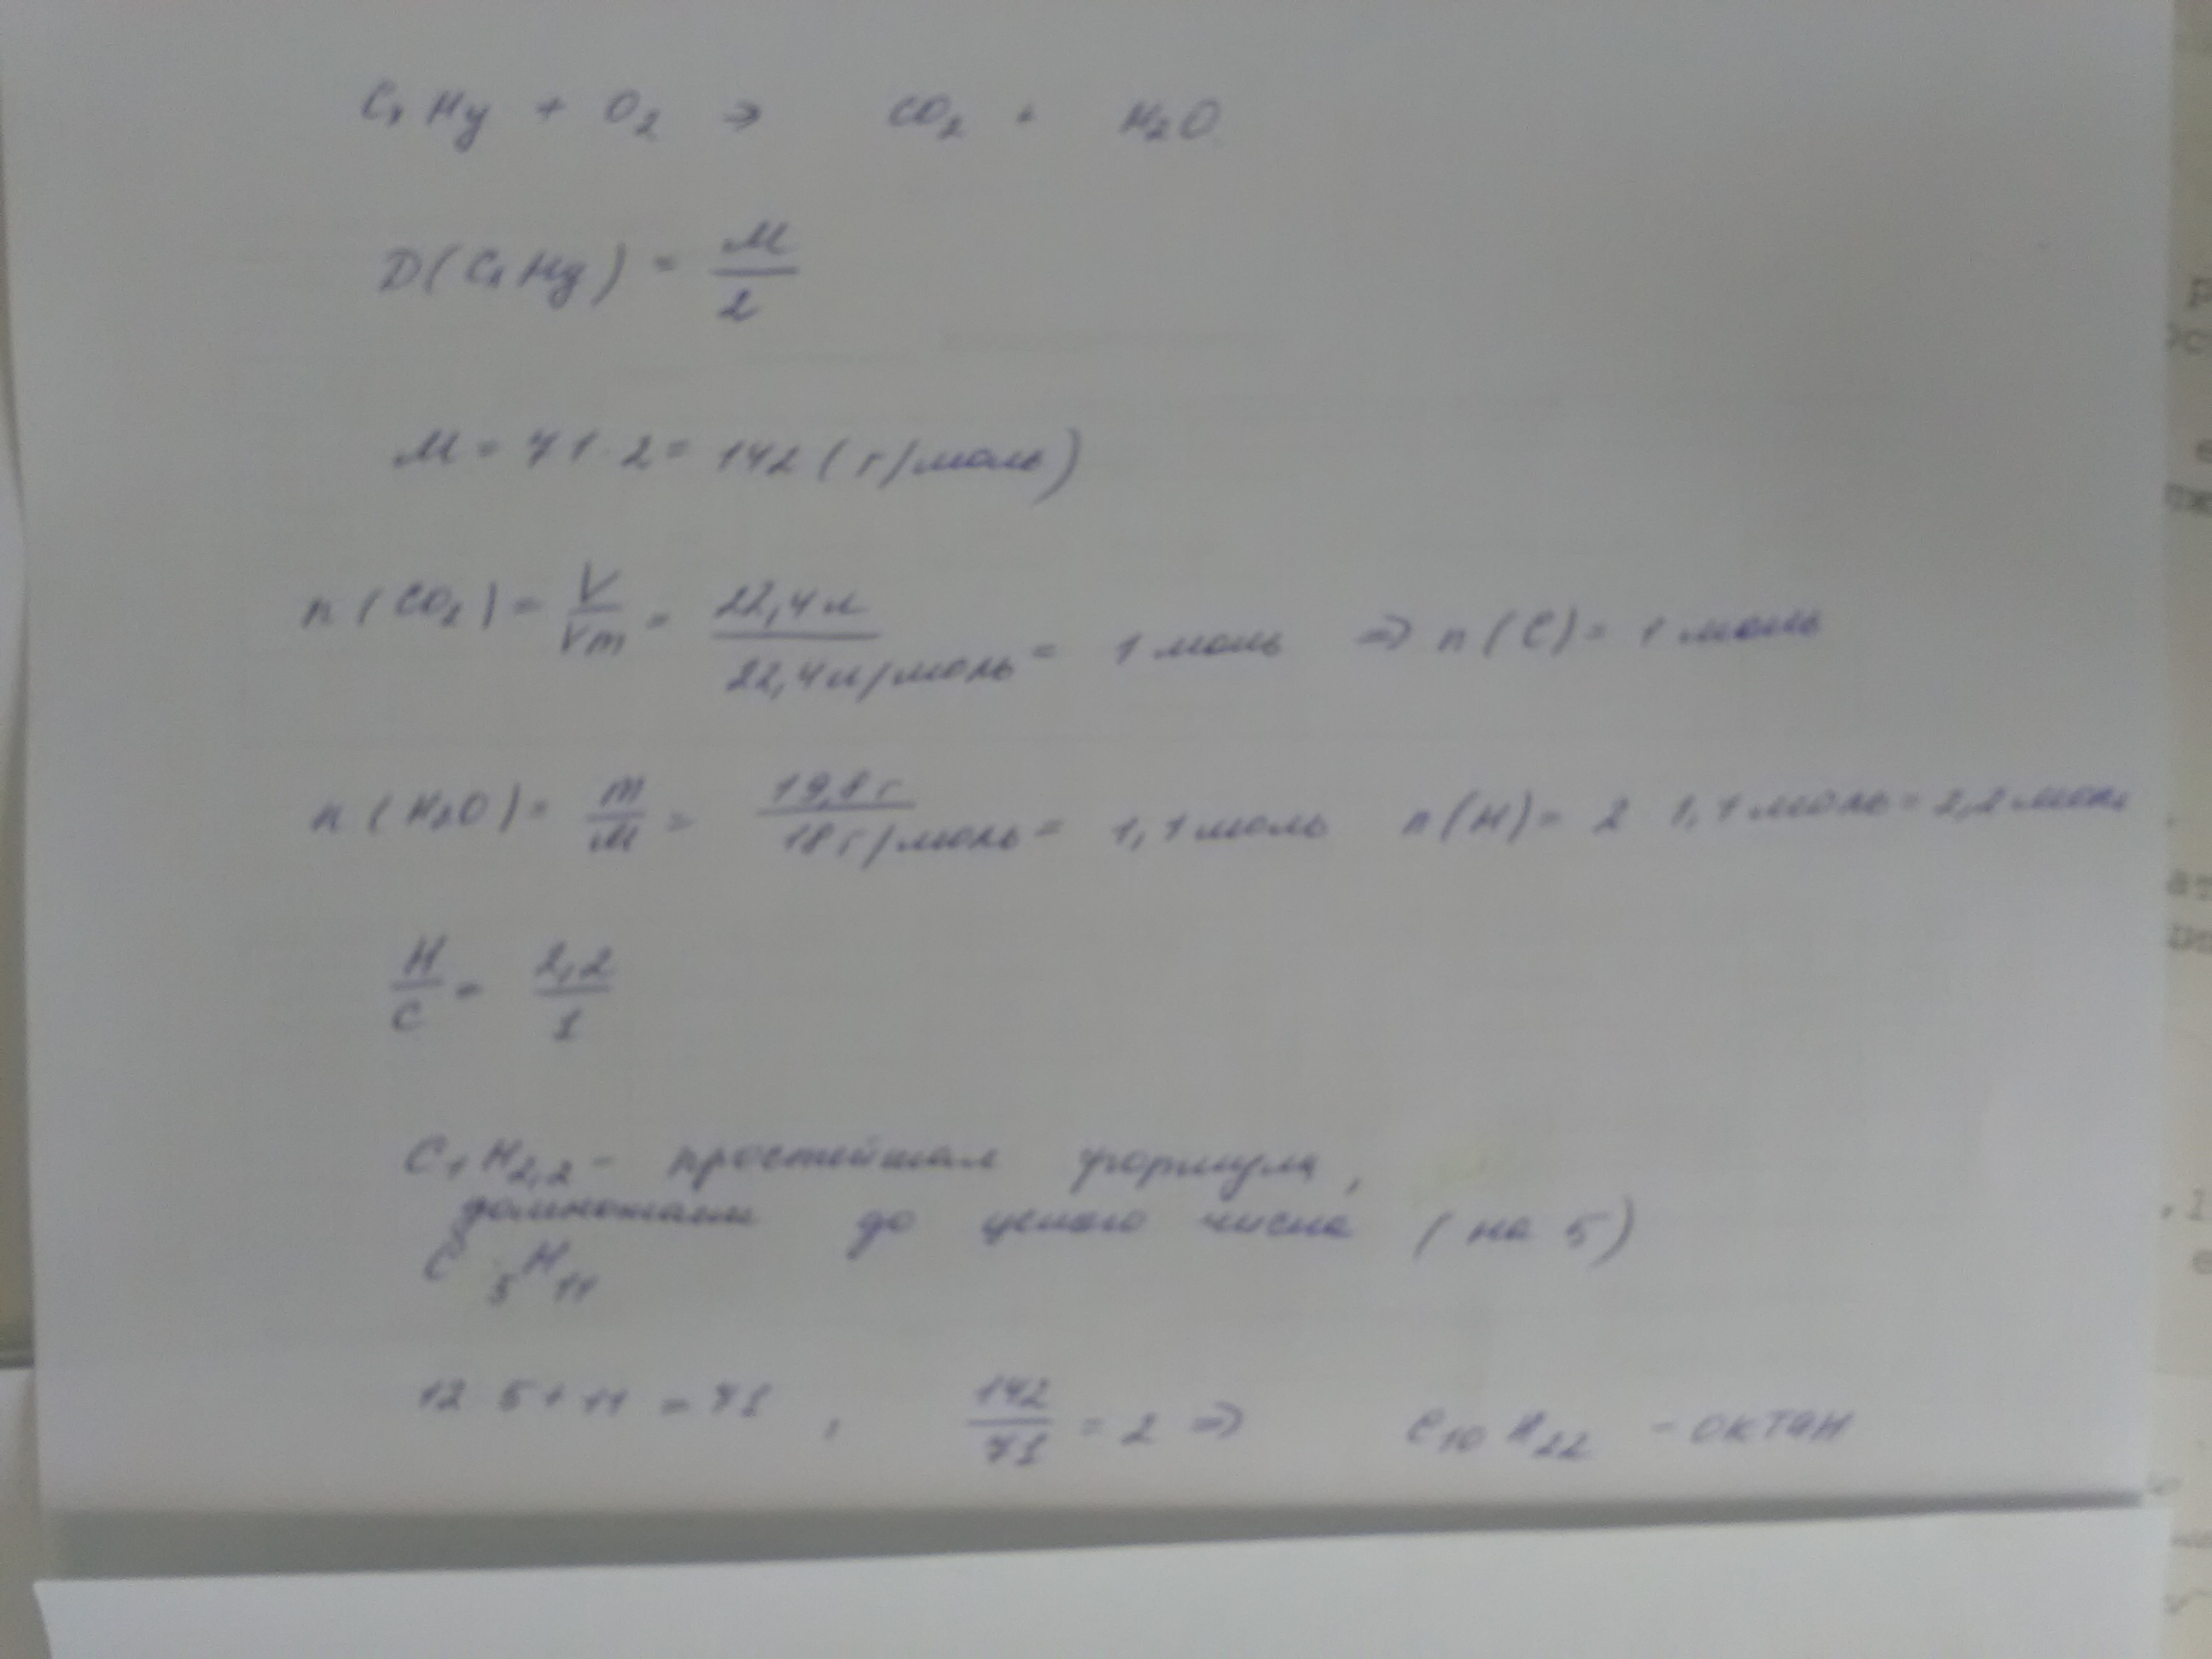 CxHy + O2 → CO2 + H2O
D(CxHy) = M/2
M = 71·2 = 142 (г/моль)
n(CO2) = V/Vm = 22,4 л/22,4 л/моль = 1 моль ⇒ n(C) = 1 моль
n(H2O) = m/M = 19,8 г/18 г/моль = 1,1 моль n(H) = 2 1,1 моль = 2,2 моль
H/C = 2,2/1
C1H2,2 - простейшая формула,
домножаем до целого числа (на 5)
C5H11
12 5 + 11 = 71 , 142/71 = 2 ⇒ C10H22 - октан